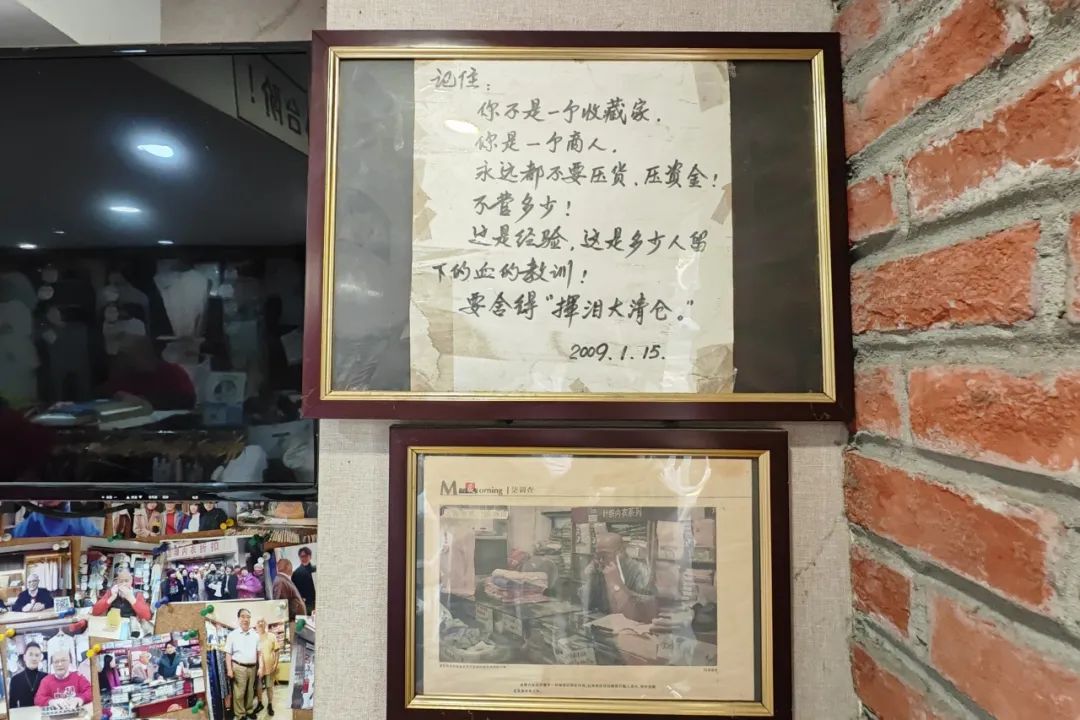 台阶!
记住:
你不是一个收藏家.
你是一个商人.
永远都不要压货、压资金!
不管多少!
这是经验,这是多少人留
下的血的教训!
要舍得“挥泪大清仓。”
2009.1.15.
Morning
针织内衣系列
内衣折扣